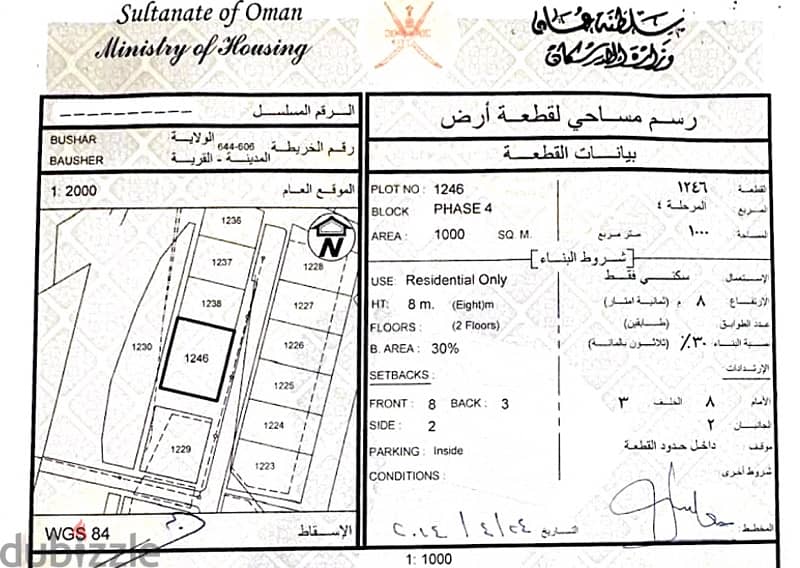 Sultanate of Oman
Ministry of Housing
سلطنة عمان
وزارة الإسكان
الرقم المسلسل
BUSHAR الولاية
BAUSHER المدينة - القرية
رقم الخريطة 644-606
1: 2000 الموقع العام
1236
1237
1238
1230
1246
1229
1228
1227
1226
1225
1224
1223
N
WGS 84 الإسقاط
رسم مساحي لقطعة أرض
بيانات القطعة
PLOT NO : 1246 القطعة ١٢٤٦
BLOCK PHASE 4 المربع المرحلة ٤
AREA : 1000 SQ. M. المساحة ١٠٠٠ متر مربع
[شروط البناء]
USE: Residential Only الإستعمال: سكني فقط
HT: 8 m. (Eight)m الإرتفاع ٨ م (ثمانية امتار)
FLOORS : (2 Floors) عدد الطوابق: (طابقين)
B. AREA : 30% نسبة البناء ٣٠٪ (ثلاثون بالمائة)
SETBACKS : الإرتدادات:
FRONT : 8 BACK : 3 الأمام ٨ الخلف ٣
SIDE : 2 الجانبان ٢
PARKING : Inside موقف: داخل حدود القطعة
CONDITIONS : شروط أخرى:
المخطط:
التاريخ ٢٠١٤/٤/٢٤
1: 1000
dubizzle